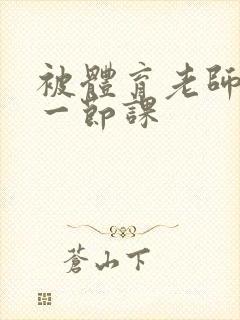 被體育老師
一節課
蒼山下